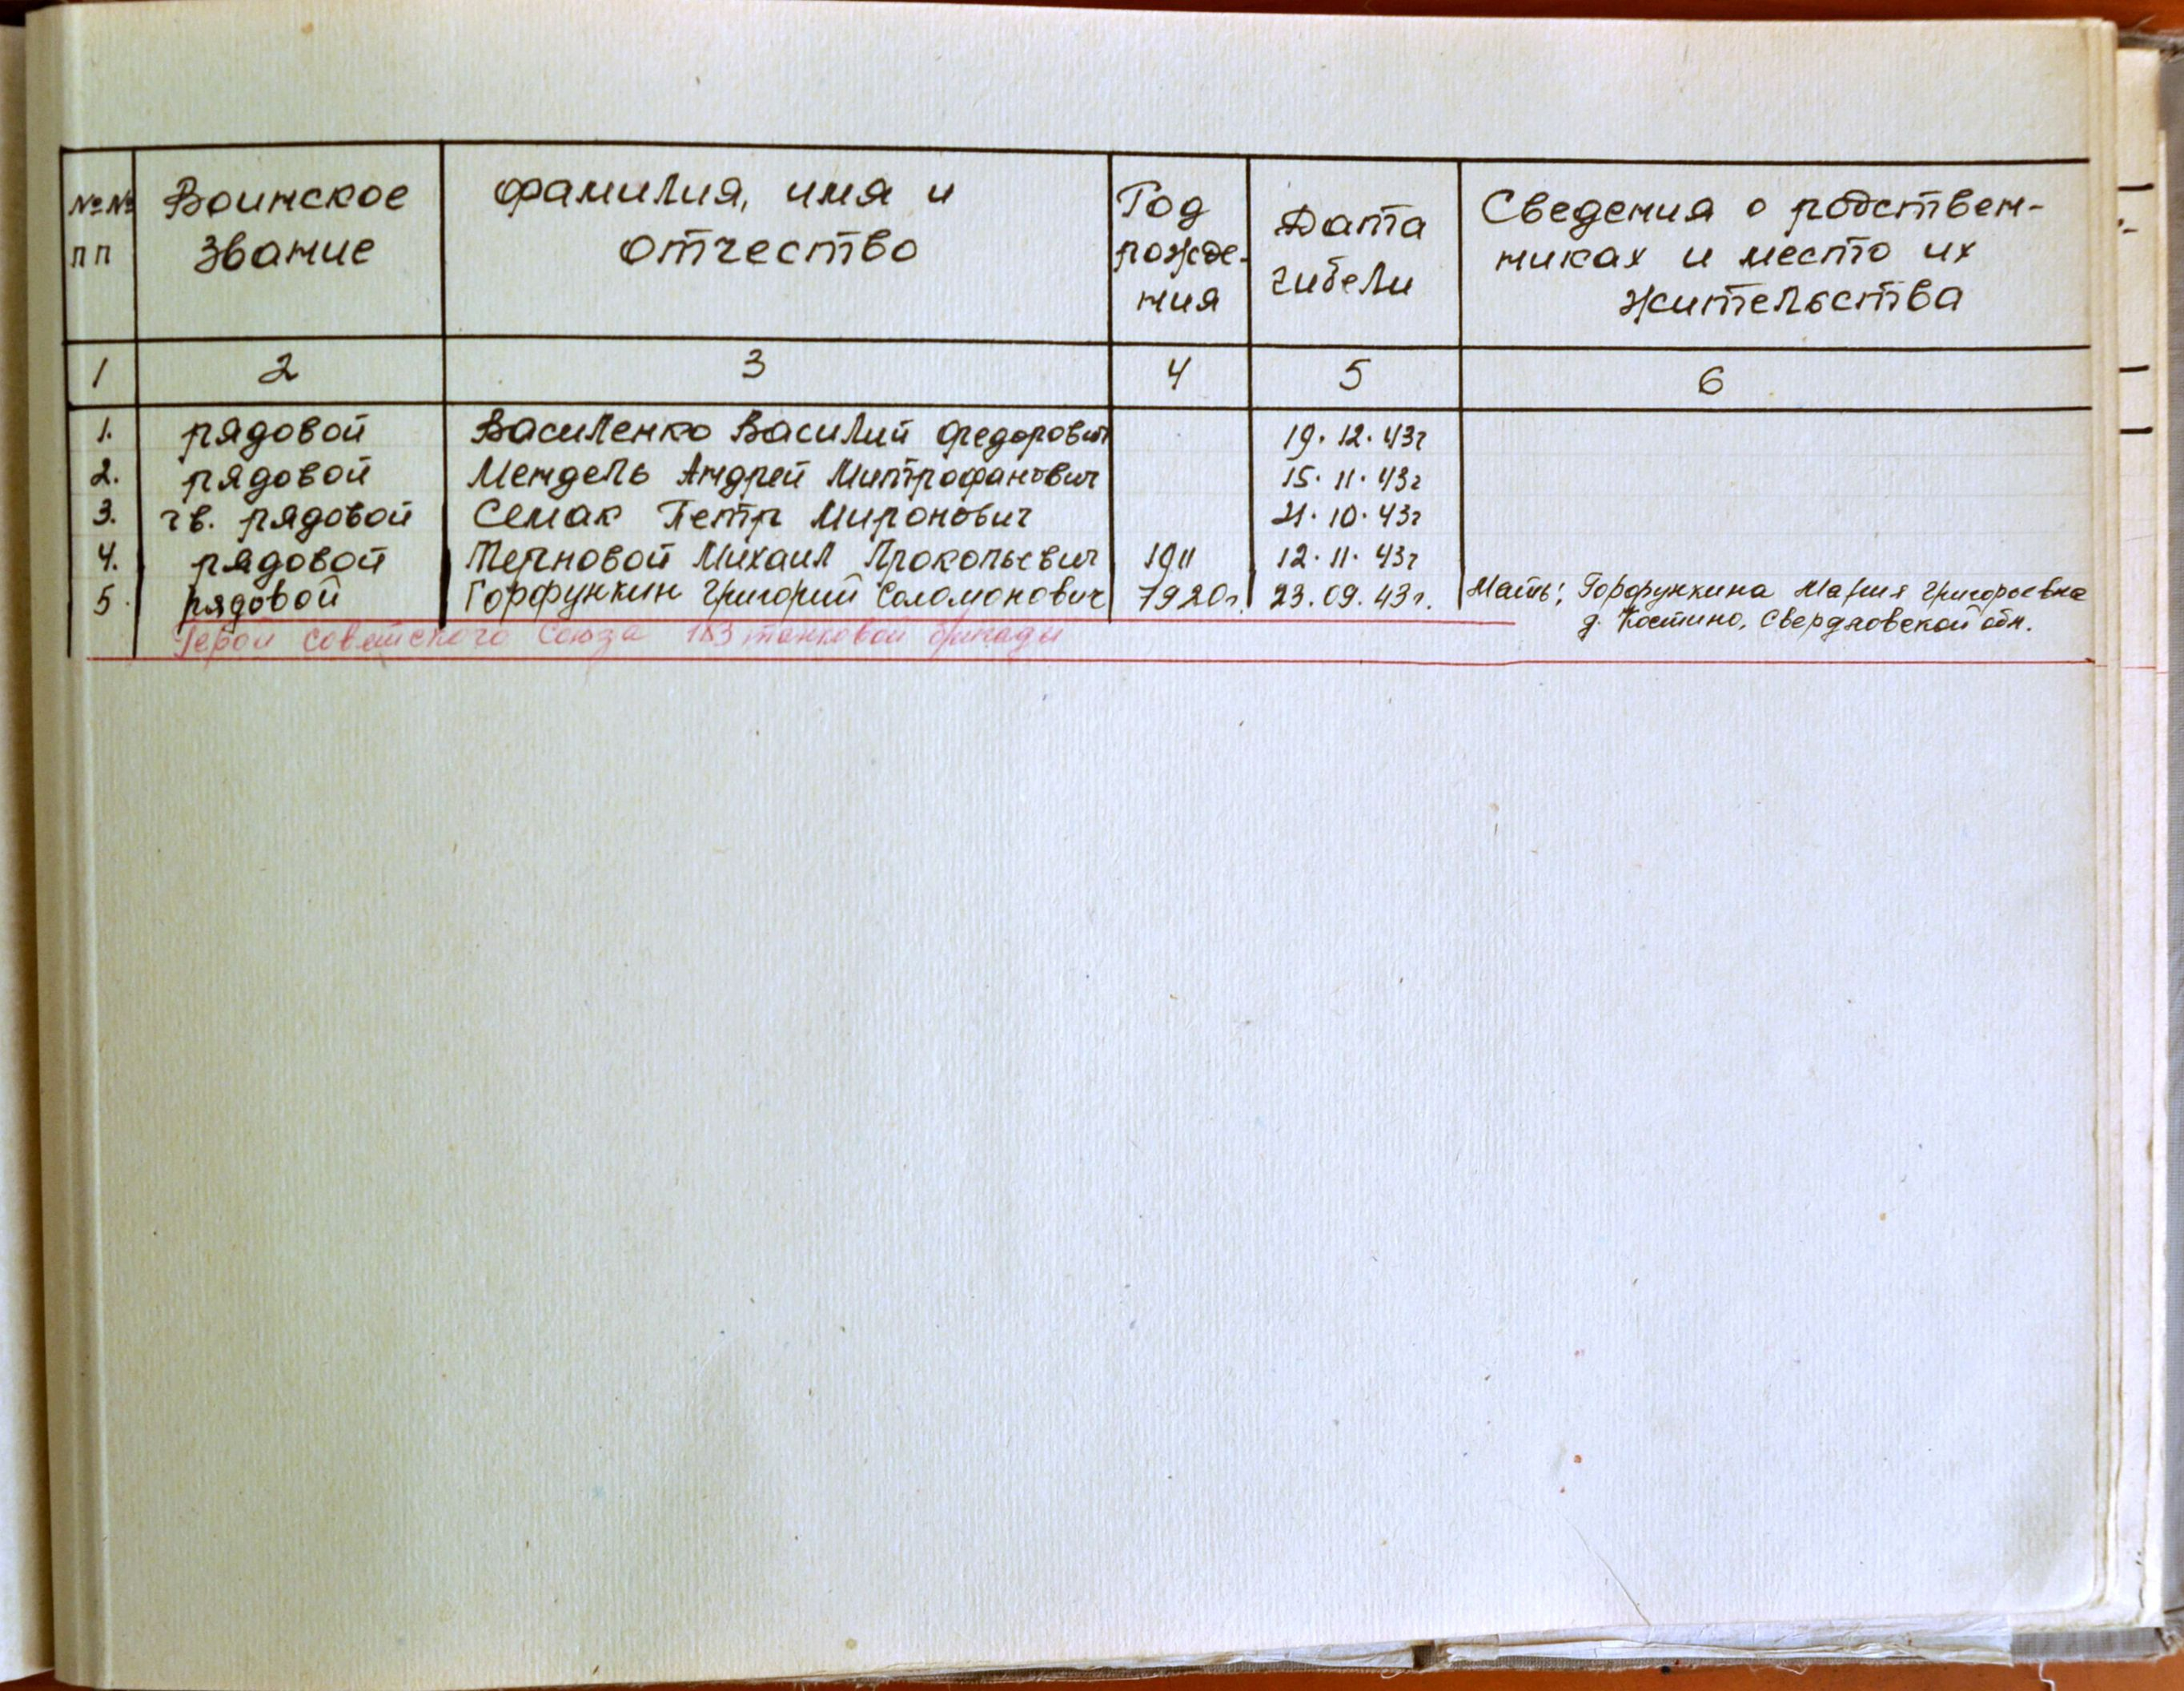 №№ пп Воинское звание Фамилия, имя и отчество Год рожде-ния Дата гибели Сведения о родствен-никах и место их жительства
1 2 3 4 5 6
1. рядовой Василенко Василий Федорович 19.12.43г
2. рядовой Мендель Андрей Митрофанович 15.11.43г
3. гв. рядовой Семак Петр Миронович 21.10.43г
4. рядовой Терновой Михаил Прокопьевич 1911 12.11.43г
5. рядовой Горфункин Григорий Соломонович 1920г. 23.09.43г. Мать: Горфункина Мария Григорьевна
д. Костино, Свердловской обл.
Герой Советского Союза 183 танковой бригады